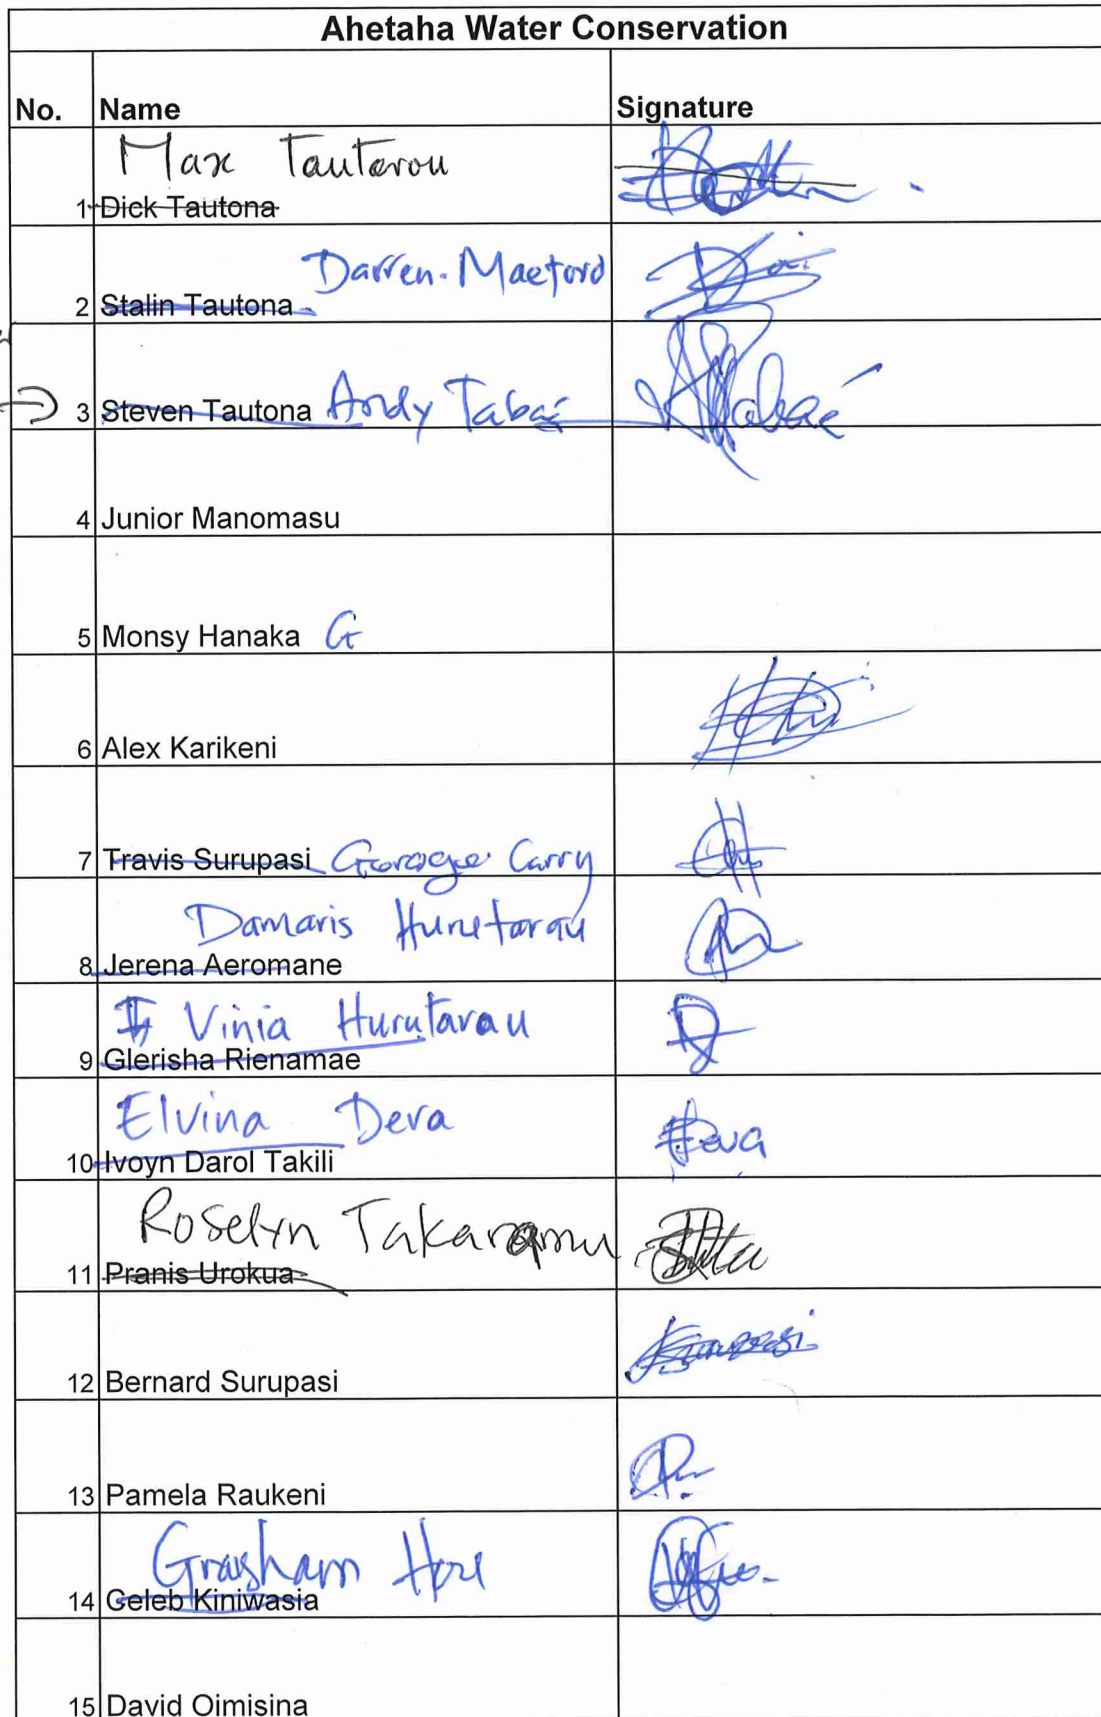 Ahetaha Water Conservation
No. Name Signature
Max Tautarou
1 Dick Tautona
Darren Maeford
2 Stalin Tautona
3 Steven Tautona Andy Tabae
4 Junior Manomasu
5 Monsy Hanaka G
6 Alex Karikeni
7 Travis Surupasi George Carry
Damaris Hurutarau
8 Jerena Aeromane
Vinia Hurutarau
9 Glerisha Rienamae
Elvina Deva
10 Ivoyn Darol Takili
Roselyn Takaramu
11 Pranis Urokua
12 Bernard Surupasi
13 Pamela Raukeni
Grasham
14 Celeb Kiniwasia
15 David Oimisina